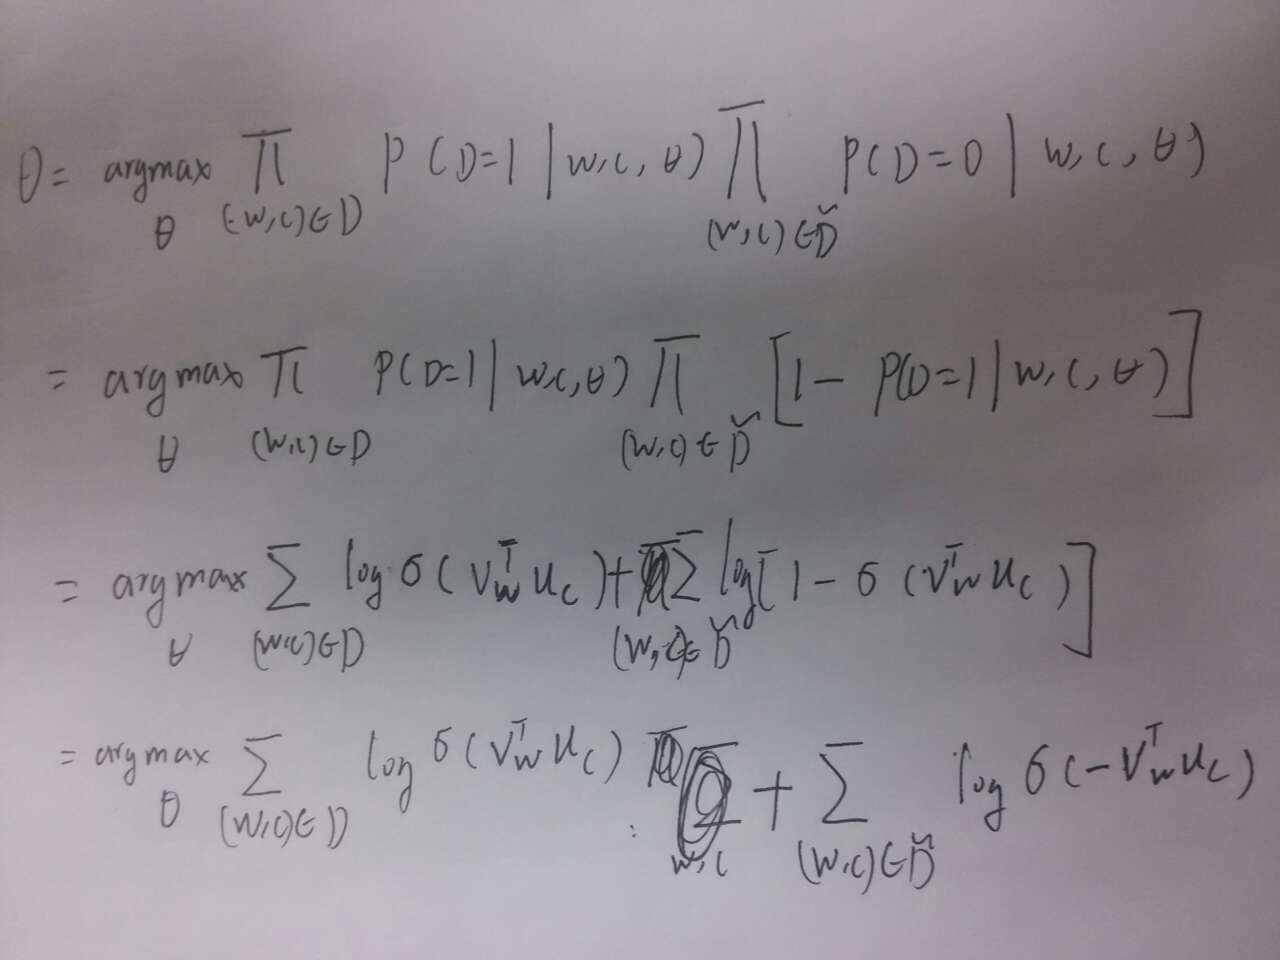 θ = argmax_θ ∏_{(w,c)∈D} P(D=1|w,c,θ) ∏_{(w,c)∈D̃} P(D=0|w,c,θ)
= argmax_θ ∏_{(w,c)∈D} P(D=1|w,c,θ) ∏_{(w,c)∈D̃} [1-P(D=1|w,c,θ)]
= argmax_θ ∑_{(w,c)∈D} log σ(V_w^T u_c) + ∑_{(w,c)∈D̃} log[1-σ(V_w^T u_c)]
= argmax_θ ∑_{(w,c)∈D} log σ(V_w^T u_c) + ∑_{(w,c)∈D̃} log σ(-V_w^T u_c)